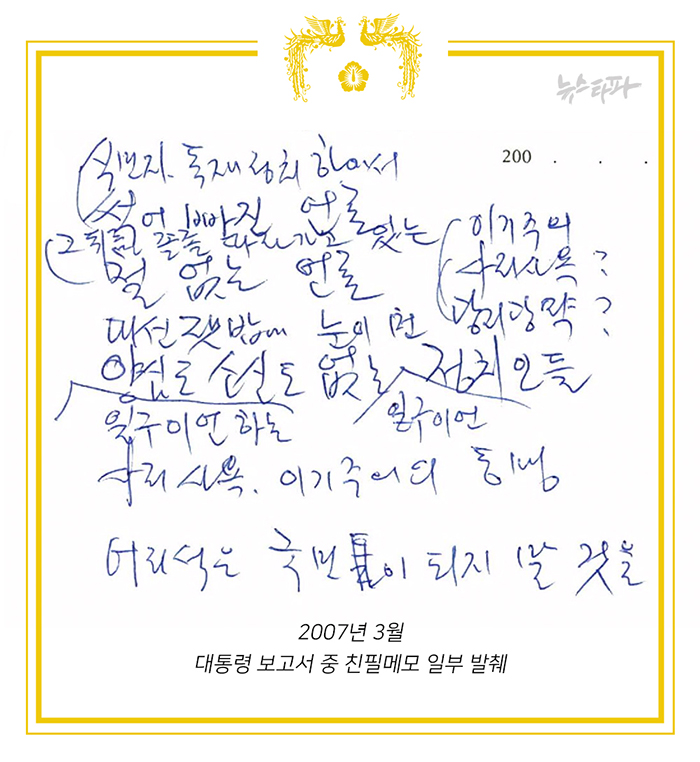 뉴스타파
200 . . .
식민지. 독재정치 하에서
썩어 빠진 언론
(그 뒤를 졸졸 따라가고 있는
철 없는 언론
이기주의
사리사욕?
당리당략?
대선 잿밥에 눈이 먼
양심도 소신도 없는 정치인들
일구이언 하는
일구이언
사리사욕. 이기주의의 동맹
어리석은 국민이 되지 말 것을
2007년 3월
대통령 보고서 중 친필메모 일부 발췌